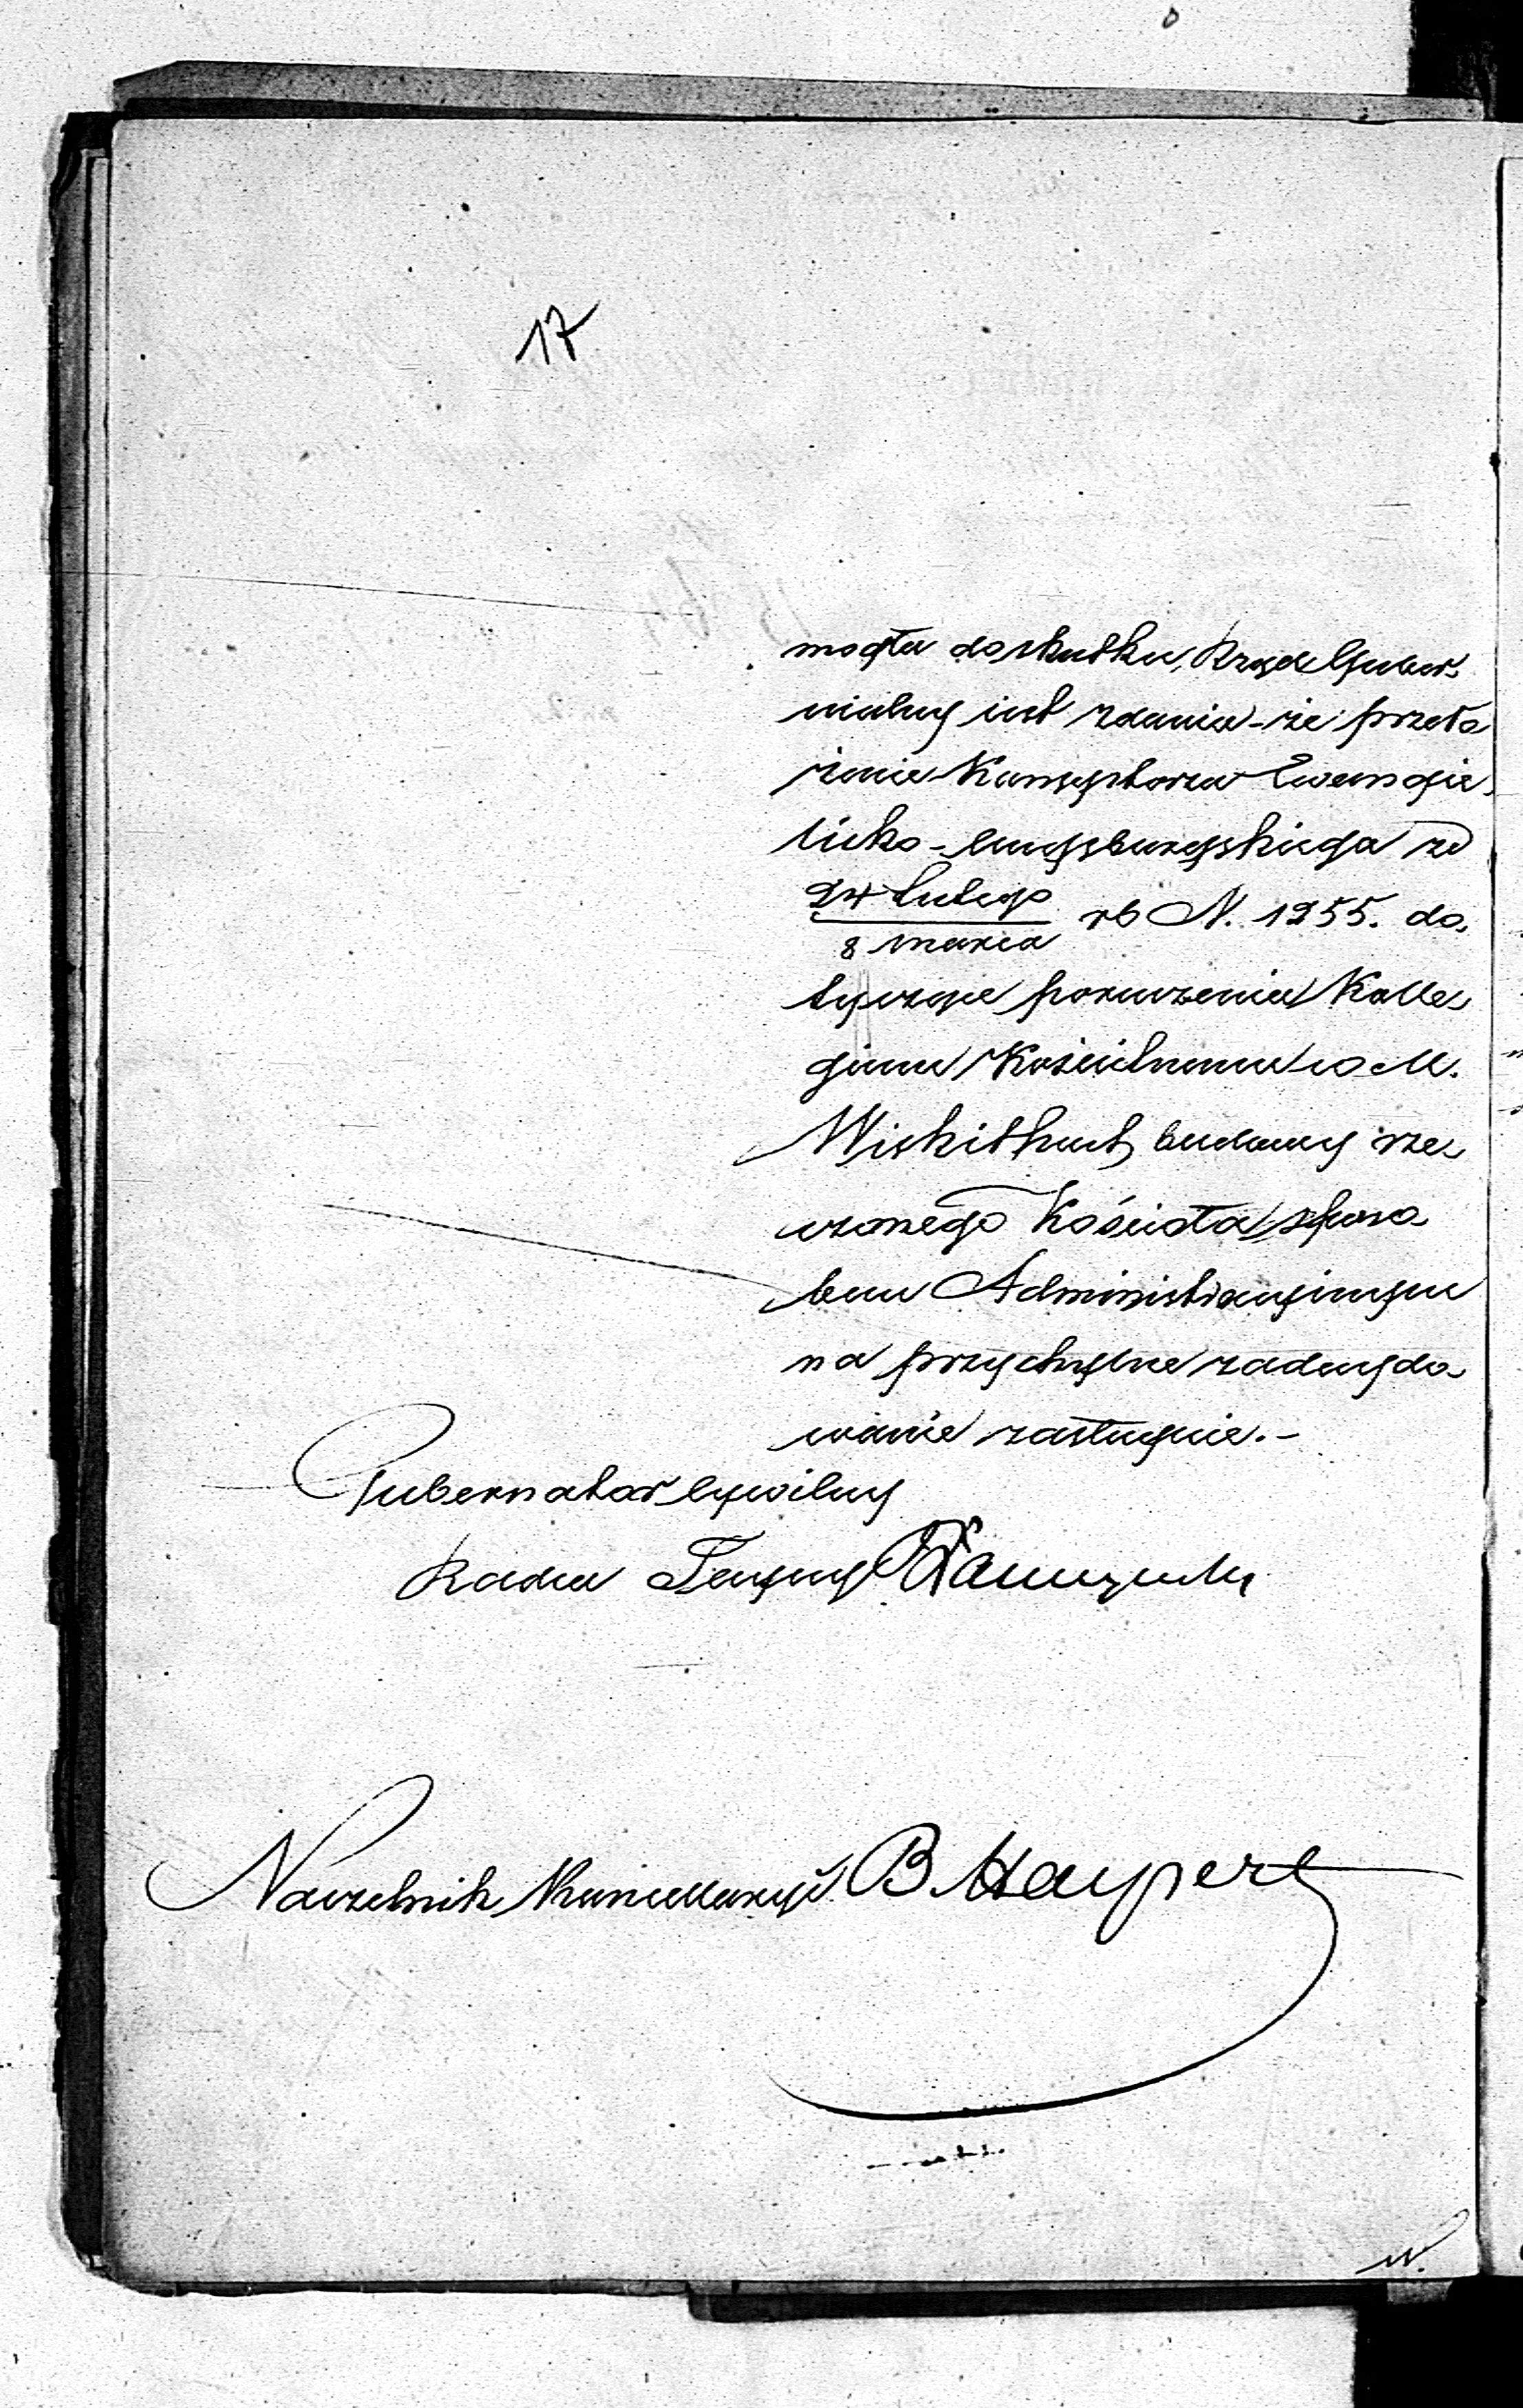 17
mogła do skutku, Rząd Guber-
nialny iest zdania że przeło
żenie Konsystorza Ewangie-
licko-Augsburgskiego zd
24 Lutego
8 marca rb N. 1255. do-
tyczące poruczenia Kolle-
gium Kościelnemu w M.
Wiskitkach budowy rze-
czonego Kościoła sposo
bem Administracyinym
na przychylne zadecydo-
wanie zasługuie.-
Gubernator Cywilny
Radca Tayny
Naczelnik Kancellaryi B. Haypert